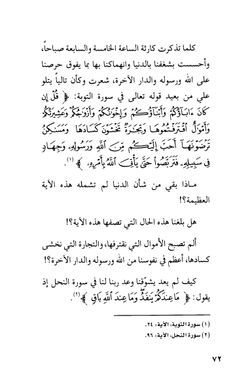 كلما تذكرت كارثة الساعة الخامسة والسابعة صباحاً،
وأحسست بشغفنا بالدنيا وانهماكنا بها بما يفوق حرصنا
على الله ورسوله والدار الآخرة، شعرت وكأن تالياً يتلو
علي من بعيد قوله تعالى في سورة التوبة: ﴿ قُلْ إِن
كَانَ ءَابَآؤُكُمْ وَأَبْنَآؤُكُمْ وَإِخْوَٰنُكُمْ وَأَزْوَٰجُكُمْ وَعَشِيرَتُكُمْ
وَأَمْوَٰلٌ ٱقْتَرَفْتُمُوهَا وَتِجَٰرَةٌ تَخْشَوْنَ كَسَادَهَا وَمَسَٰكِنُ
تَرْضَوْنَهَآ أَحَبَّ إِلَيْكُم مِّنَ ٱللَّهِ وَرَسُولِهِۦ وَجِهَادٍ
فِى سَبِيلِهِۦ فَتَرَبَّصُوا۟ حَتَّىٰ يَأْتِىَ ٱللَّهُ بِأَمْرِهِۦ ﴾(١).
ماذا بقي من شأن الدنيا لم تشمله هذه الآية
العظيمة؟!
هل بلغنا هذه الحال التي تصفها هذه الآية؟!
ألم تصبح الأموال التي نقترفها، والتجارة التي نخشى
كسادها، أعظم في نفوسنا من الله ورسوله والدار الآخرة؟!
كيف لم يعد يشوّقنا وعد ربنا لنا في سورة النحل إذ
يقول: ﴿ مَا عِندَكُمْ يَنفَدُ وَمَا عِندَ ٱللَّهِ بَاقٍ ﴾(٢).
(١) سورة التوبة، الآية: ٢٤.
(٢) سورة النحل، الآية: ٩٦.
٧٢